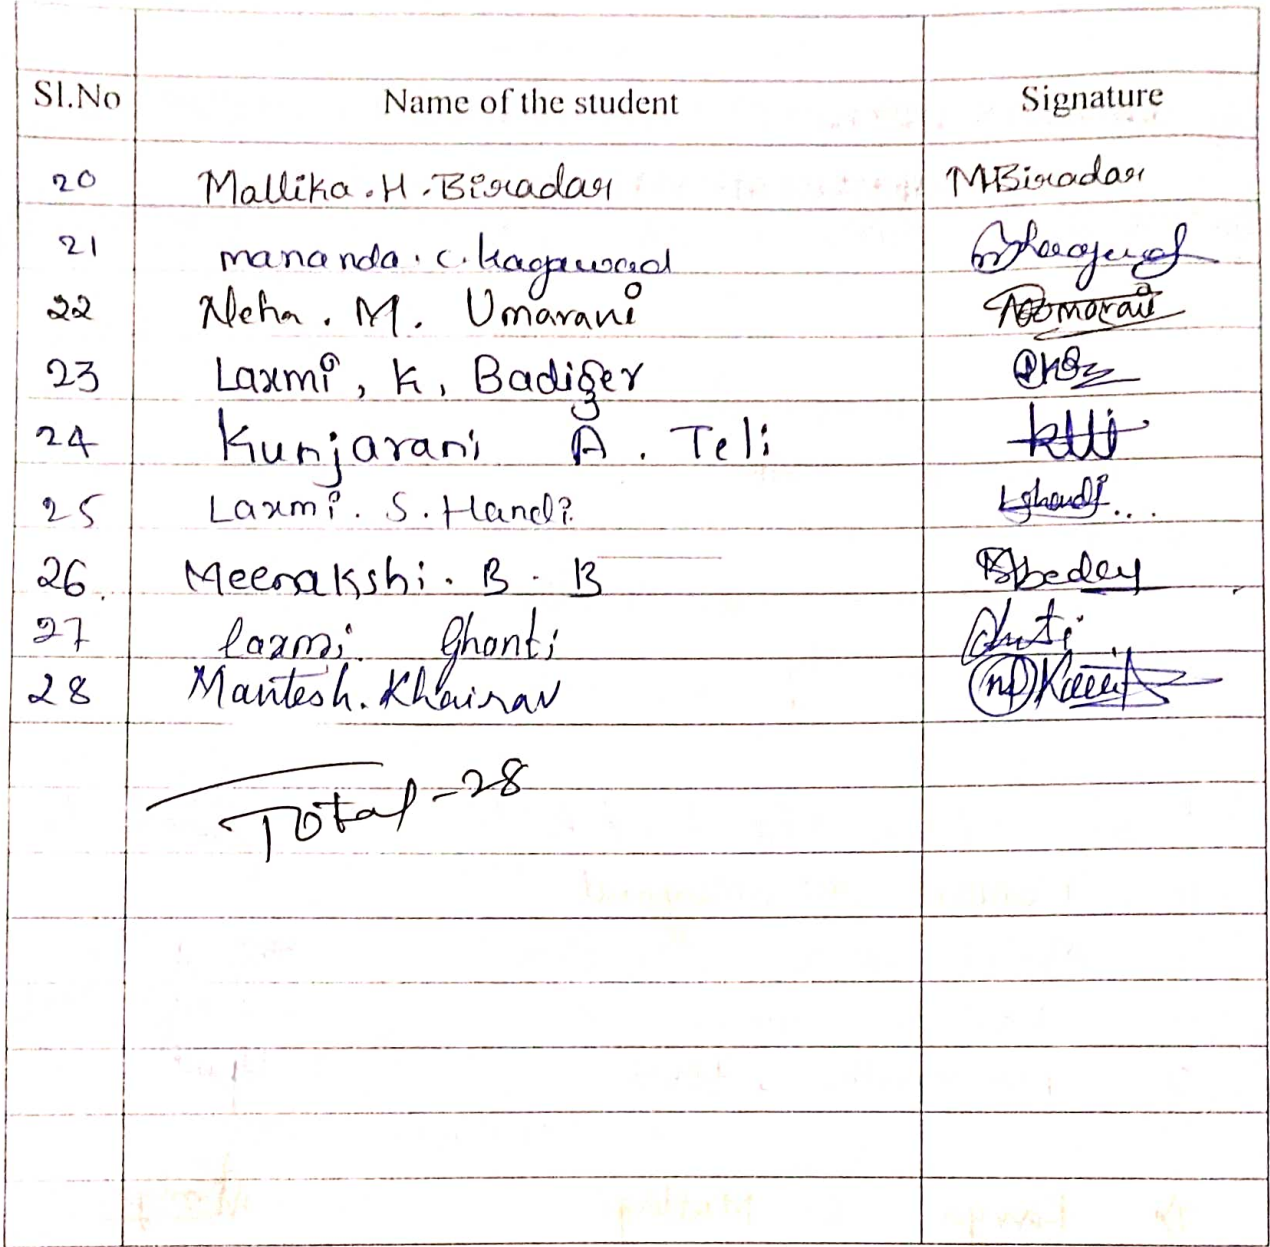 Sl.No Name of the student Signature
20 Mallika . H . Biradar MBiradar
21 mananda . c. kagawad
22 Neha . M. Umarani
23 Laxmi , K , Badiger
24 Kunjarani A . Teli
25 Laxmi . S . Handi
26 Meenakshi . B . B
27 laxmi Ghanti
28 Mantesh . Khainav
Total - 28